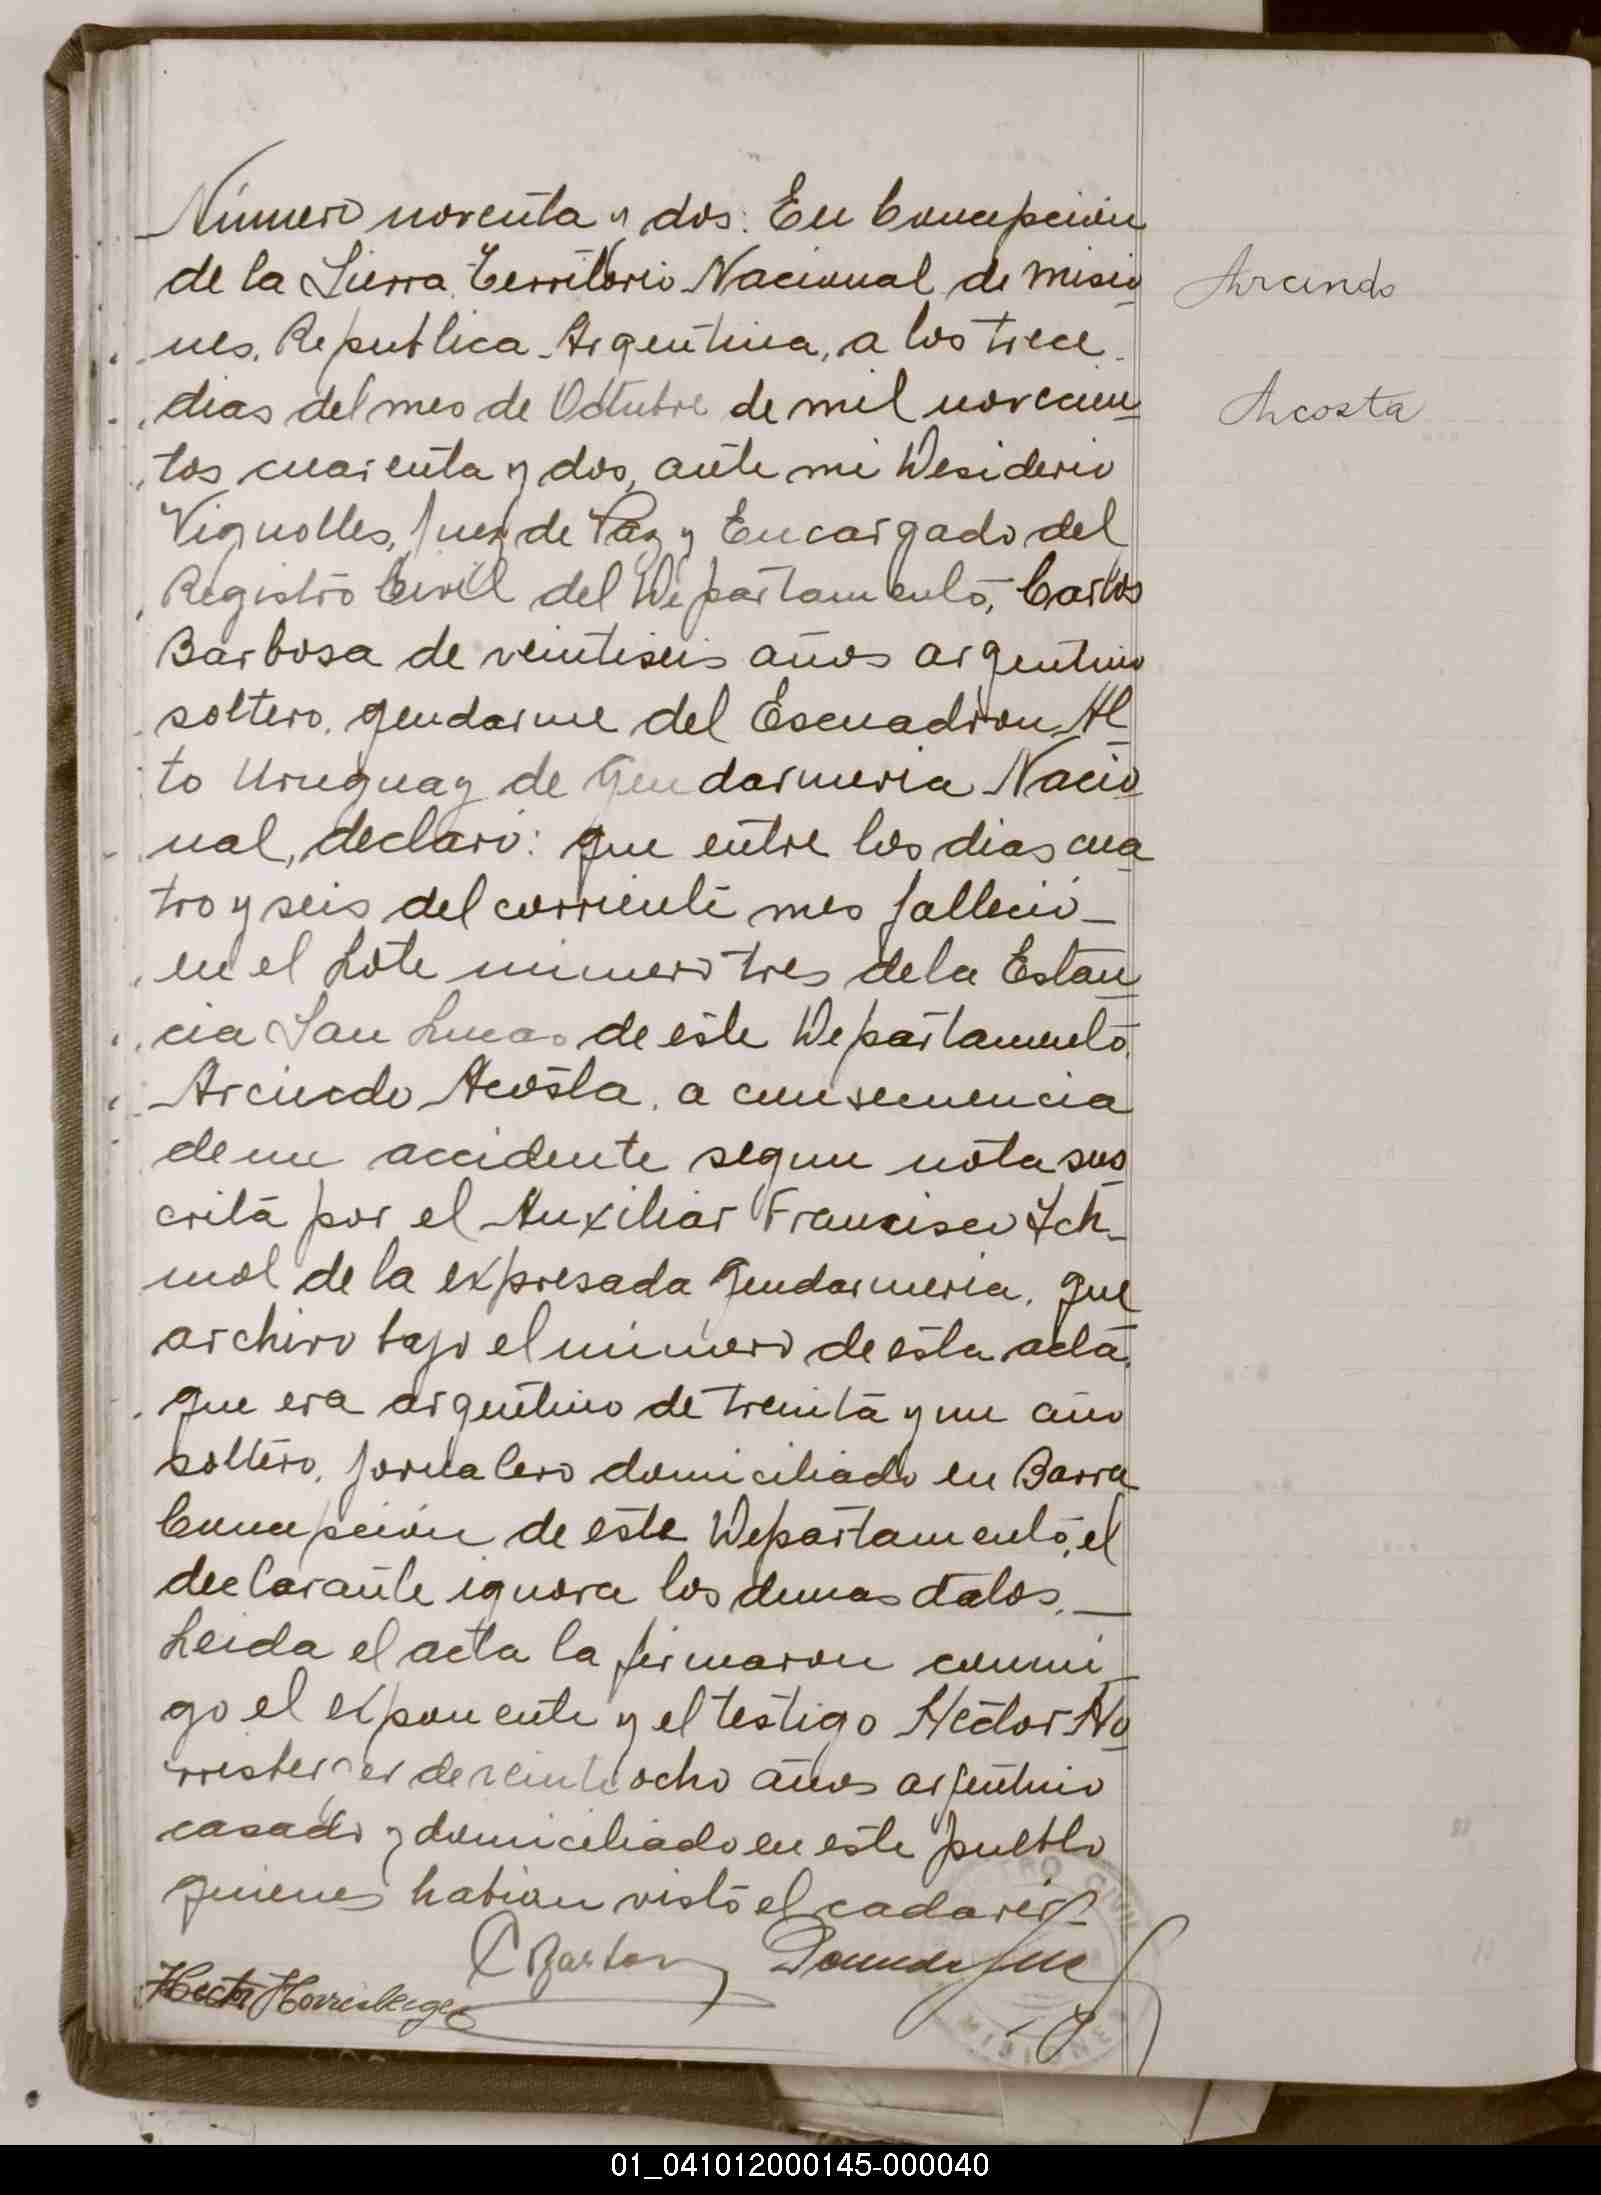 Número noventa y dos: En Concepción
de la Sierra, Territorio Nacional de Misio
nes, Republica Argentina, a los trece
dias del mes de Octubre de mil novecien
tos cuarenta y dos, ante mi Desiderio
Vignolles, Juez de Paz y Encargado del
Registro Civil del Departamento, Carlos
Barbosa de veintiseis años argentino
soltero, gendarme del Escuadron Al
to Uruguay de Gendarmeria Nacio
nal, declaró: que entre los dias cua
tro y seis del corriente mes falleció
en el Lote número tres de la Estan
cia San Lucas de este Departamento
Arcindo Acosta, a consecuencia
de un accidente segun nota sus
crita por el Auxiliar Francisco
de la expresada Gendarmeria, que
archivo bajo el número de esta acta,
que era argentino de treinta y un año
soltero, jornalero domiciliado en Barra
Concepción de este Departamento, el
declarante ignora los demas datos.
Leida el acta la firmaron conmi
go el exponente y el testigo Hector Ho
rrisberger de veinte ocho años argentino
casado y domiciliado en este pueblo
quienes habian visto el cadaver
Hector Horrisberger
Arcindo
Acosta
MISIONES
01_041012000145-000040